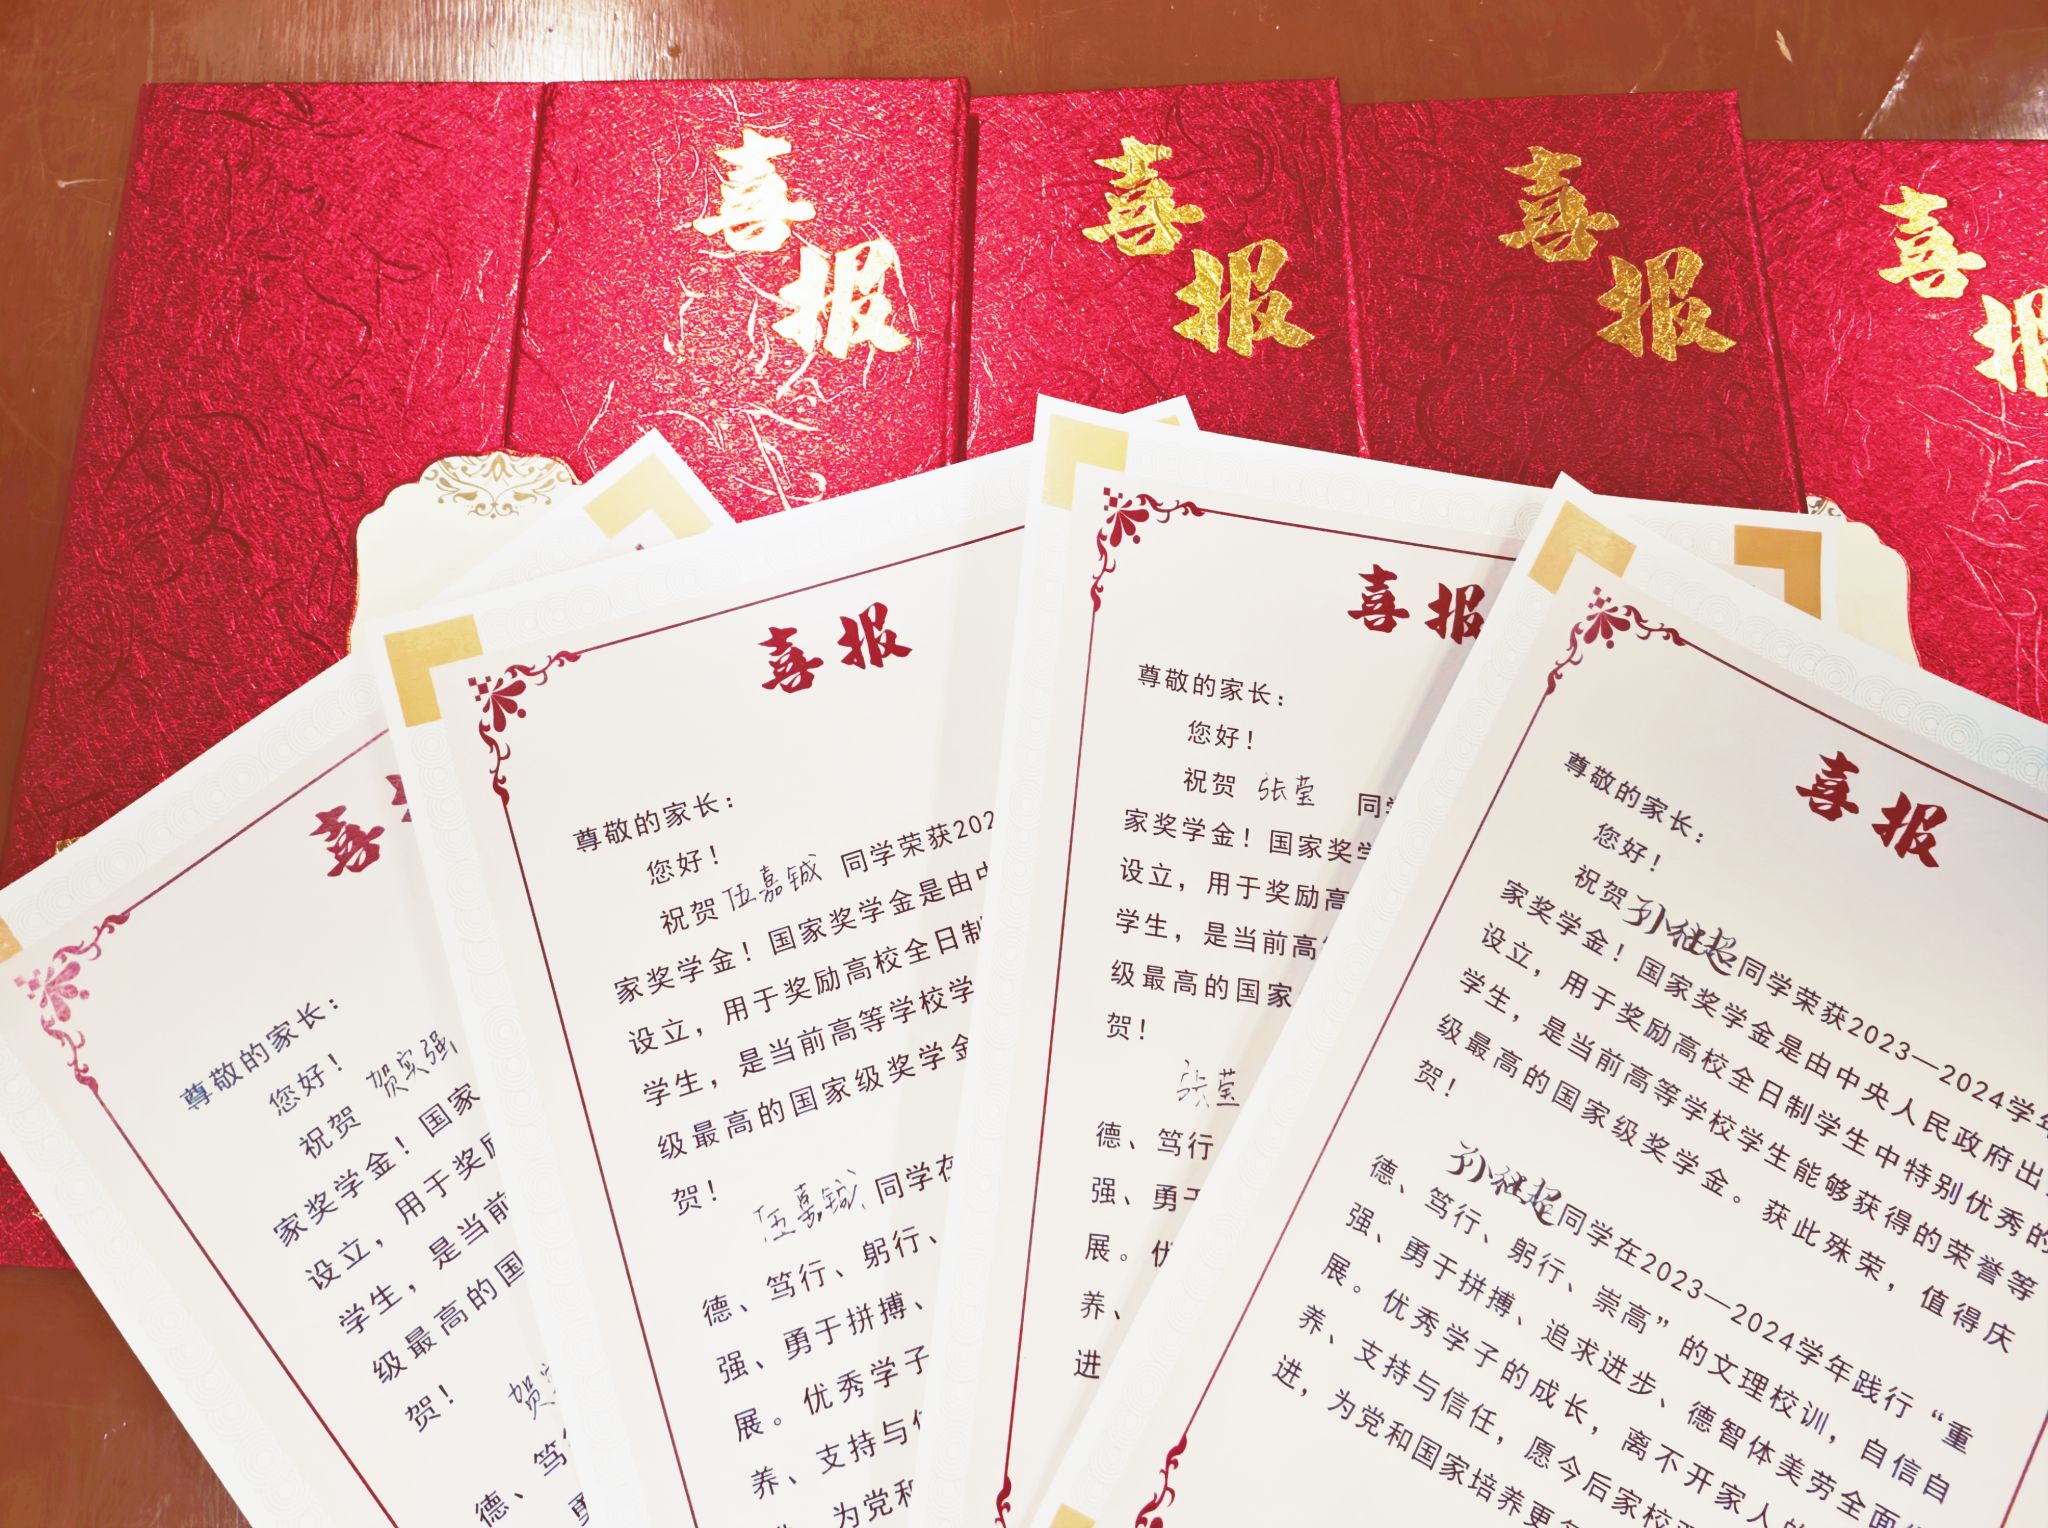 喜
报
喜
报
喜
报
喜
报
喜
尊敬的家长：
您好！
祝贺 贺实强
家奖学金！国家
设立，用于奖励
学生，是当前
级最高的国
贺！
贺
德、笃
喜报
尊敬的家长：
您好！
祝贺 伍嘉铖 同学荣获202
家奖学金！国家奖学金是由中
设立，用于奖励高校全日制
学生，是当前高等学校学
级最高的国家级奖学金
贺！
伍嘉铖 同学在
德、笃行、躬行、
强、勇于拼搏、
展。优秀学子
养、支持与信
，为党和
喜报
尊敬的家长：
您好！
祝贺 张莹 同学
家奖学金！国家奖学
设立，用于奖励高
学生，是当前高
级最高的国家
贺！
张莹
德、笃行
强、勇于
展。优
养、
进
喜报
尊敬的家长：
您好！
祝贺孙征超同学荣获2023—2024学年
家奖学金！国家奖学金是由中央人民政府出
设立，用于奖励高校全日制学生中特别优秀的
学生，是当前高等学校学生能够获得的荣誉等
级最高的国家级奖学金。获此殊荣，值得庆
贺！
孙征超同学在2023—2024学年践行“重
德、笃行、躬行、崇高”的文理校训，自信自
强、勇于拼搏、追求进步、德智体美劳全面
展。优秀学子的成长，离不开家人的
养、支持与信任，愿今后家校
进，为党和国家培养更